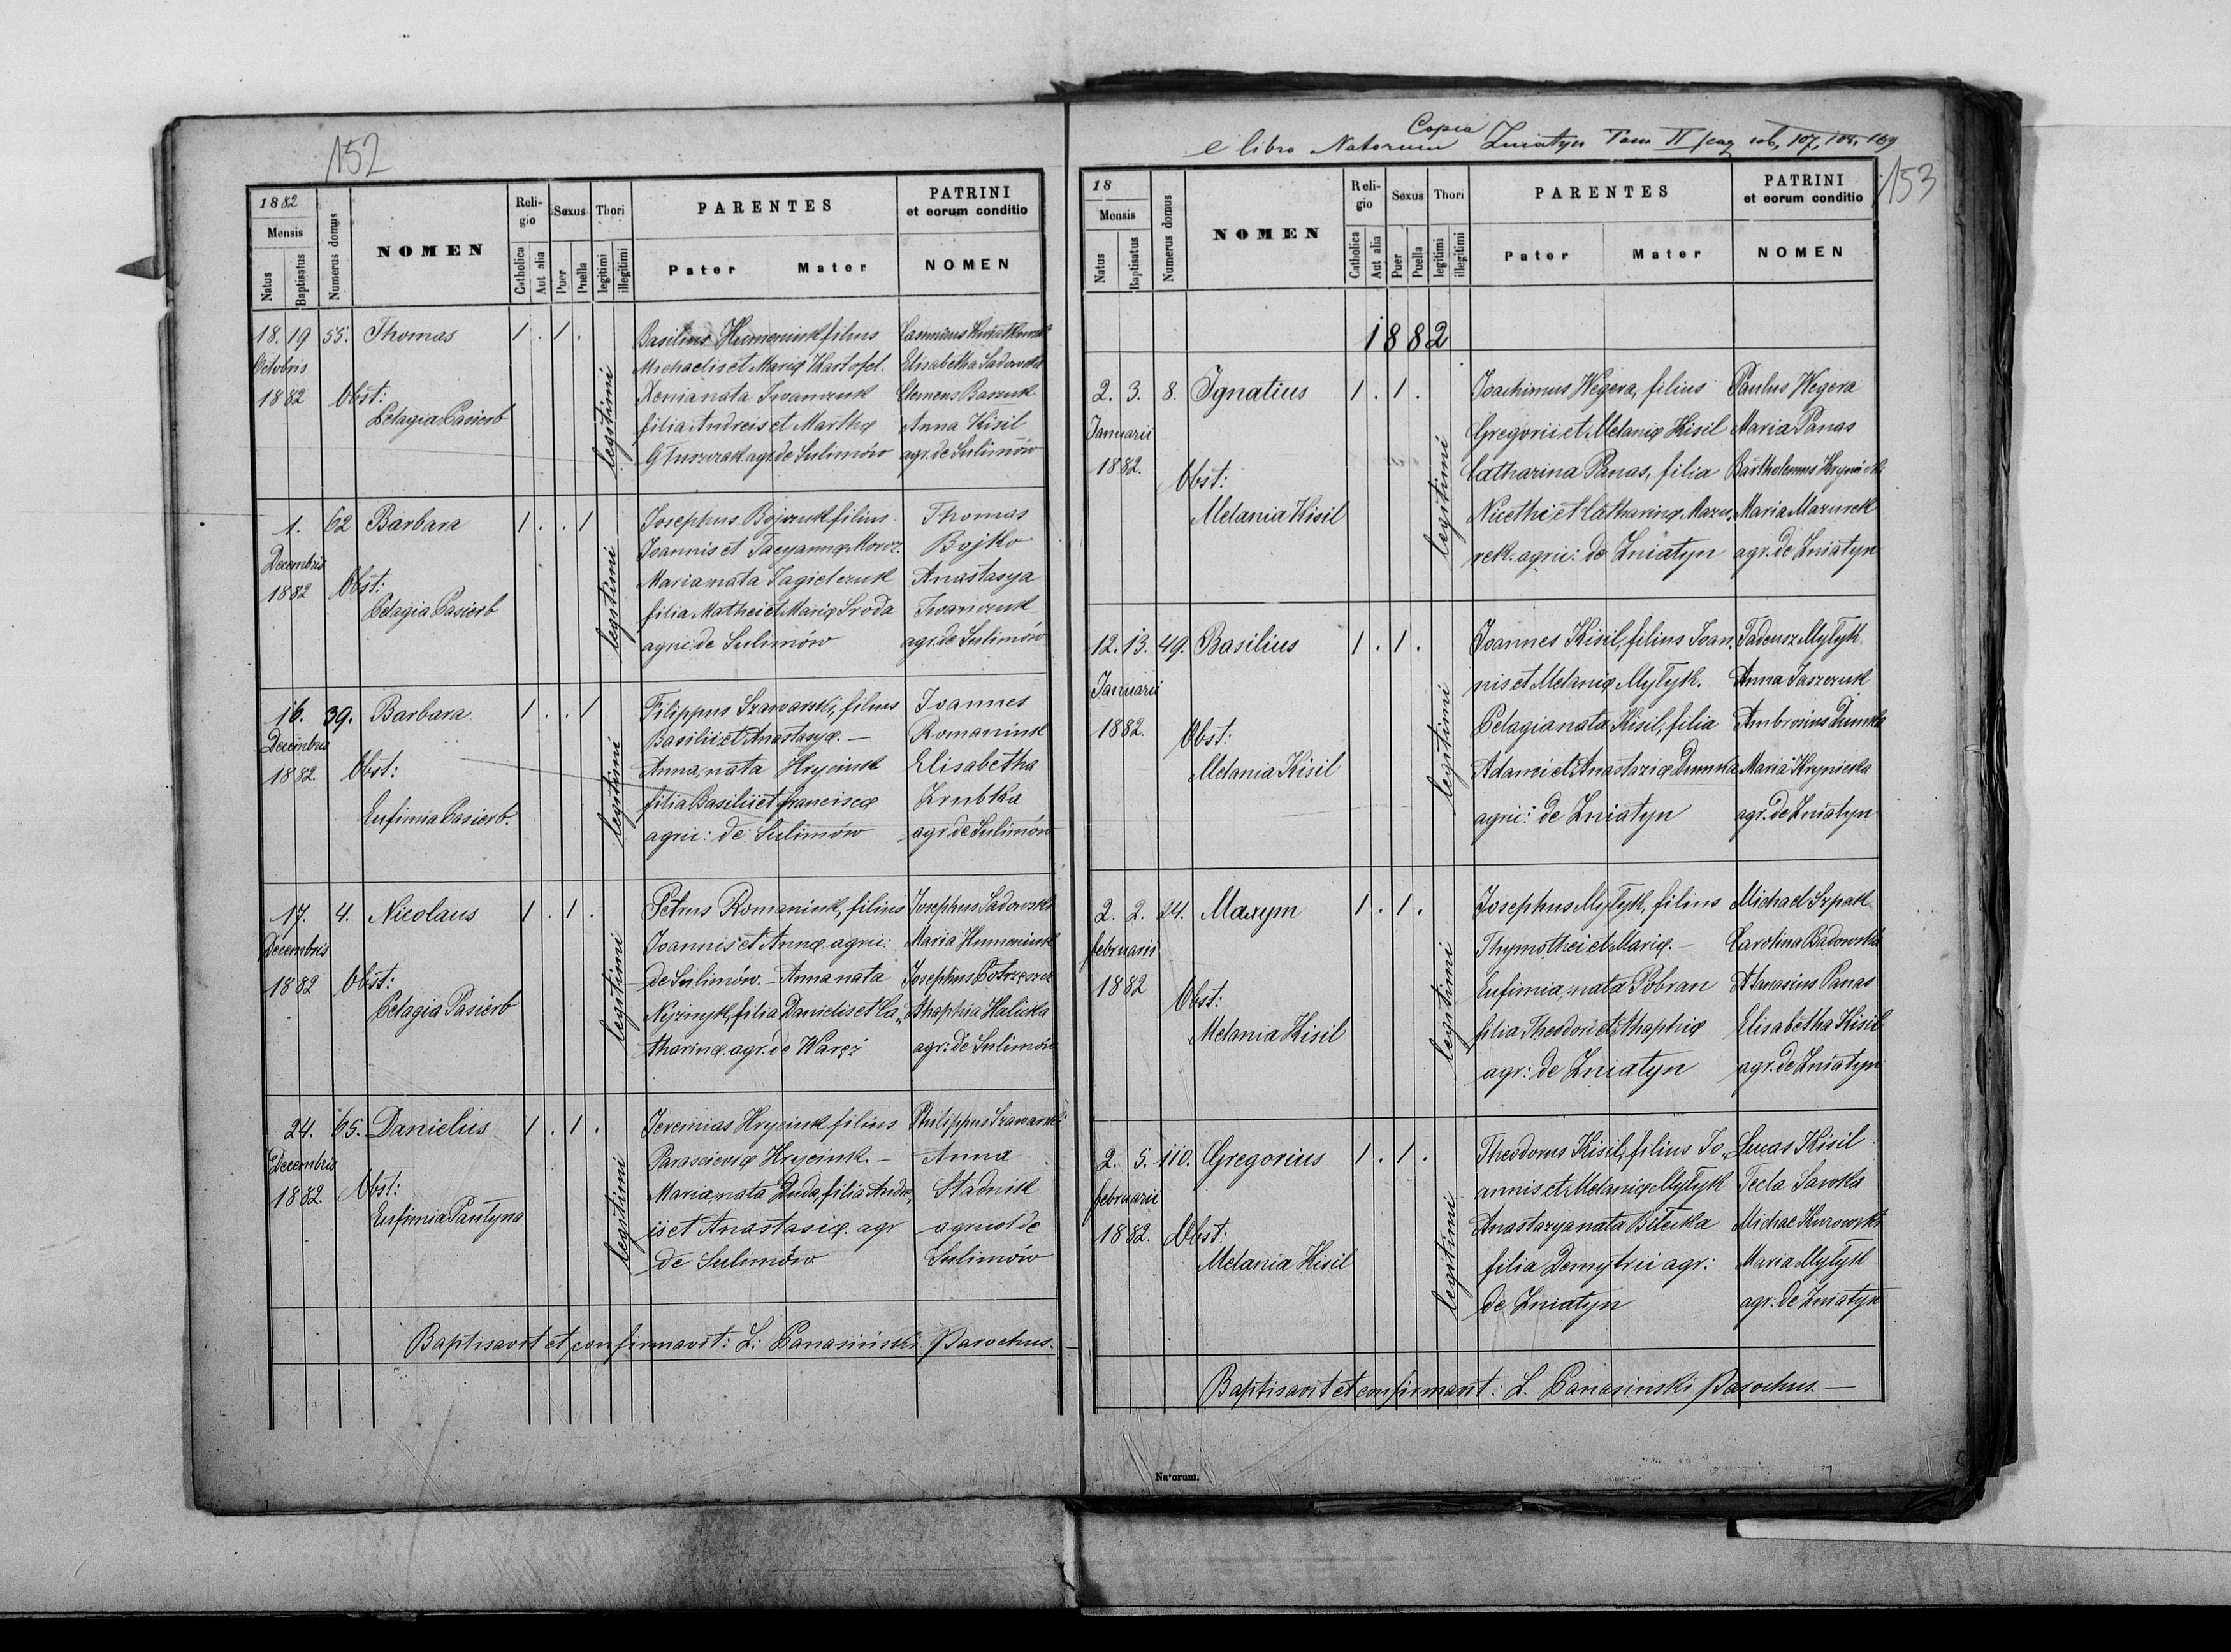 152
1882
Mensis
Natus
Baptisatus
Numerus domus
NOMEN
Religio
Catholica
Aut alia
Sexus
Puer
Puella
Thori
legitimi
illegitimi
PARENTES
Pater Mater
PATRINI
et eorum conditio
NOMEN
18. 19 55. Thomas 1 . 1 .
Octobris
1882 Obst:
Pelagia Pasierb
legitimi
Basilius Humeniuk filius
Michaelis et Mariæ Kartofel.
Xenia nata Iwanczuk
filia Andreis et Marthæ
Głuszczak agr. de Sulimów
Casimirus Kwiatkowski
Elisabetha Sadowska
Clemens Baszuk
Anna Kisil
agr. de Sulimów
1. 62 Barbara 1 . . 1
Decembris
1882 Obst:
Pelagia Pasierb
legitimi
Josephus Bojczuk filius
Joannis et Tacyannæ Moroz.
Maria nata Jagielczuk
filia Mathei et Mariæ Sroda
agric. de Sulimów
Thomas
Bojko
Anastasya
Iwanczuk
agr. de Sulimów
16. 39. Barbara 1 . . 1
Decembris
1882. Obst:
Eufimia Pasierb.
legitimi
Filippus Szawarski, filius
Basilii et Anastasyæ. —
Anna, nata Hryciuk
filia Basilii et Franciscæ
agric: de Sulimów
Joannes
Romaniuk
Elisabetha
Zrubka
agr. de Sulimów
17. 4. Nicolaus 1 . 1 .
Decembris
1882 Obst:
Pelagia Pasierb
legitimi
Petrus Romaniuk, filius
Joannis et Annæ agric:
de Sulimów. — Anna nata
Nyżnyk, filia Danielis et Ca„
tharinæ. agr. de Waręż
Josephus Sadowski
Maria Humeniuk
Josephus
Ahaphia Halicka
agr: de Sulimów
24. 65. Danielus 1 . 1 .
Decembris
1882. Obst:
Eufimia Pautyna
legitimi
Jeremias Hryciuk filius
Parascieviæ Hryciuk. —
Maria, nata Duda, filia Andre„
is et Anastasiæ. agr
de Sulimów
Philippus Szawarski
Anna
Stadnik
agricol de
Sulimów
Baptisavit et confirmavit: L: Panasiński. Parochus. —
Copia
e libro Natorum Zniatyn Tom II pag 106, 107, 108, 109
153
18
Mensis
Natus
Baptisatus
Numerus domus
NOMEN
Religio
Catholica
Aut alia
Sexus
Puer
Puella
Thori
legitimi
illegitimi
PARENTES
Pater Mater
PATRINI
et eorum conditio
NOMEN
1882
2. 3. 8. Ignatius 1 . 1 .
Januarii
1882. Obst:
Melania Kisil
legitimi
Joachimus Wegera, filius
Gregorii et Melaniæ Kisil
Catharina Panas, filia
Nicethi et Catharinæ Mazu„
rek. agric: de Zniatyn
Paulus Wegera
Maria Panas
Bartholemus
Maria Mazurek
agr. de Zniatyn
12. 13. 49. Basilius 1 . 1 .
Januarii
1882. Obst:
Melania Kisil
legitimi
Joannes Kisil, filius Joan„
nis et Melaniæ Mylyk.
Pelagia nata Kisil, filia
Adamei et Anastaziæ Dumka
agric: de Zniatyn
Tadeusz Mylyk
Anna Jaszczuk
Ambrosius Dumka
Maria Krynicka
agr. de Zniatyn
2. 2. 24. Maxym 1 . 1 .
februarii
1882 Obst:
Melania Kisil
legitimi
Josephus Mylyk, filius
Thymothei et Mariæ. —
Eufimia, nata Pobran
filia Theodori et Ahaphiæ
agr: de Zniatyn
Michael Szpak
Carolina Badowska
Atanasius Panas
Elisabetha Kisil
agr. de Zniatyn
2. 5. 110. Gregorius 1 . 1 .
februarii
1882. Obst:
Melania Kisil
legitimi
Theodorus Kisil, filius Jo„
annis et Melaniæ Mylyk
Anastazya nata Bilecka
filia Demytrii agr:
de Zniatyn
Lucas Kisil
Tecla Sawka
Michae Kurowski
Maria Mylyk
agr. de Zniatyn
Baptisavit et confirmavit: L. Panasinski Parochus. —
Natorum.